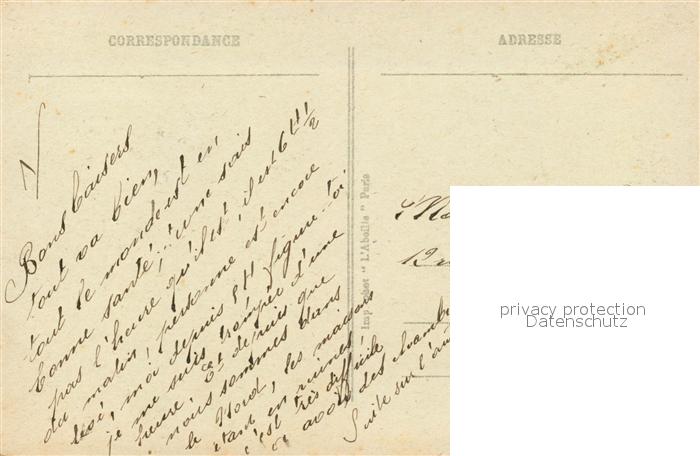 CORRESPONDANCE
ADRESSE
Bons baisers
tout va bien,
tout le monde est en
bonne santé, j'une sais
pas l'heure qu'il est, il est 6 H 1/2
du matin, personne est encore
levé, moi depuis 5 H figure-toi
je me suis trompée d'une
heure, Et depuis que
nous sommes dans
le Nord, les maisons
étant en ruines
c'est très difficile
a avoir des chamb
Suite sur l'au
Imp. "L'Abeille" Paris
privacy protection
Datenschutz